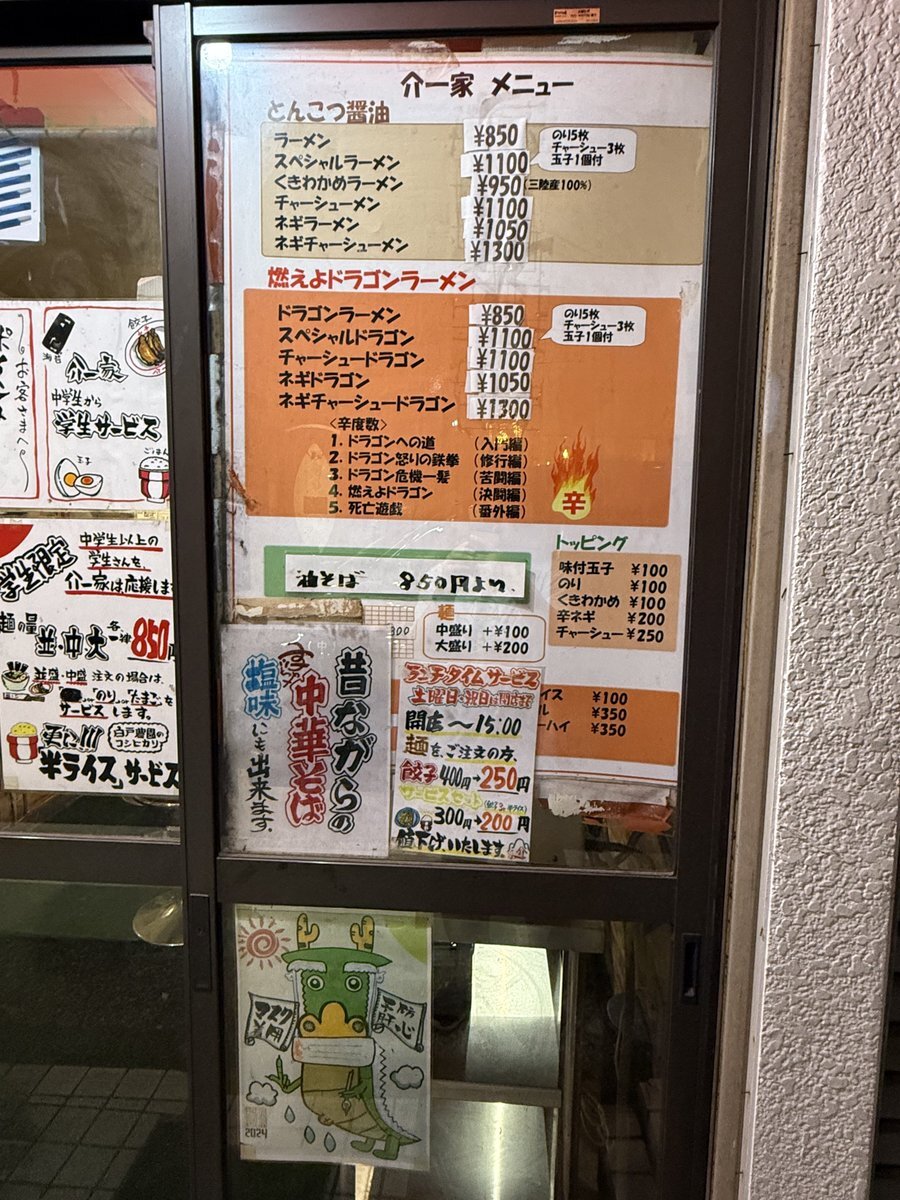 介一家 メニュー
とんこつ醤油
ラーメン ¥850
スペシャルラーメン ¥1100
のり5枚
チャーシュー3枚
玉子1個付
くきわかめラーメン ¥950 (三陸産100%)
チャーシューメン ¥1100
ネギラーメン ¥1050
ネギチャーシューメン ¥1300
燃えよドラゴンラーメン
ドラゴンラーメン ¥850
スペシャルドラゴン ¥1100
のり5枚
チャーシュー3枚
玉子1個付
チャーシュードラゴン ¥1100
ネギドラゴン ¥1050
ネギチャーシュードラゴン ¥1300
<辛度数>
1. ドラゴンへの道 (入門編)
2. ドラゴン怒りの鉄拳 (修行編)
3. ドラゴン危機一髪 (苦闘編)
4. 燃えよドラゴン (決闘編)
5. 死亡遊戯 (番外編)
辛
油そば 850円より
トッピング
味付玉子 ¥100
のり ¥100
くきわかめ ¥100
辛ネギ ¥200
チャーシュー ¥250
麺
中盛り +¥100
大盛り +¥200
イス ¥100
ル ¥350
ーハイ ¥350
昔ながらの
中華そば
塩味にも出来ます。
ランチタイムサービス
土曜日・祝日は閉店まで
開店〜15:00
麺をご注文の方、
餃子400円→250円
サービスセット
300円→200円
値下げいたします。
お客さまへ
海苔
餃子
介一家
中学生から
学生サービス
玉子
ごはん
学生限定
中学生以上の
学生さんを
介一家は応援しま
麺の量
並・中・大 各一律 850円
並盛・中盛 注文の場合は、
「のり」「たまご」を
サービスします。
更に!!!
白戸農園の
コシヒカリ
半ライス」サービス
マスク
着用
予防
肝心
2024